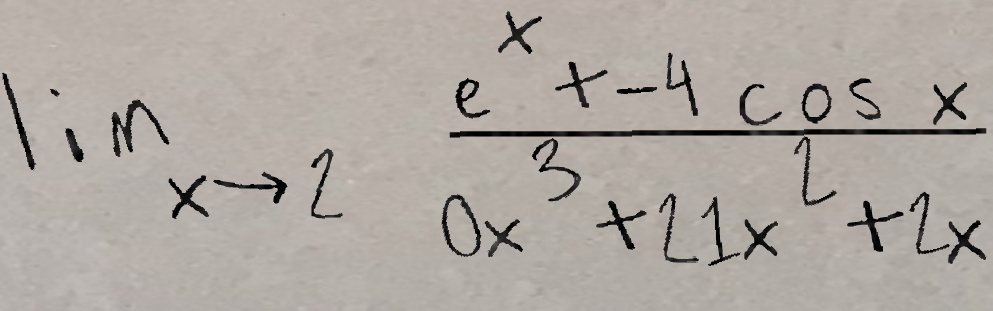 \lim_{x \to 2} \frac{e^x + -4 \cos x}{0x^3 + 21x^2 + 2x}